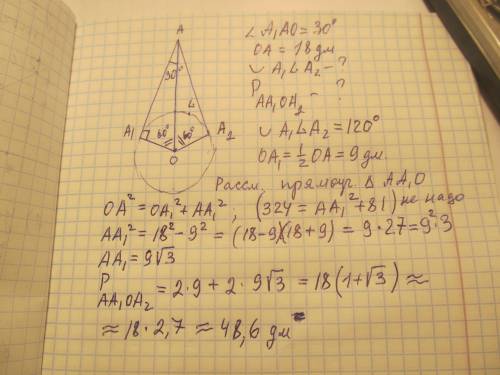 A
30°
L
A₁
60°
60°
A₂
O
∠A₁AO = 30°
OA = 18 дм
∪ A₁LA₂ - ?
P AA₁OA₂ - ?
∪ A₁LA₂ = 120°
OA₁ = 1/2 OA = 9 дм.
Рассм. прямоуг. △ AA₁O
OA² = OA₁² + AA₁² ; (324 = AA₁² + 81) не надо
AA₁² = 18² - 9² = (18-9)(18+9) = 9·27 = 9²·3
AA₁ = 9√3
P AA₁OA₂ = 2·9 + 2·9√3 = 18(1+√3) ≈
≈ 18·2,7 ≈ 48,6 дм